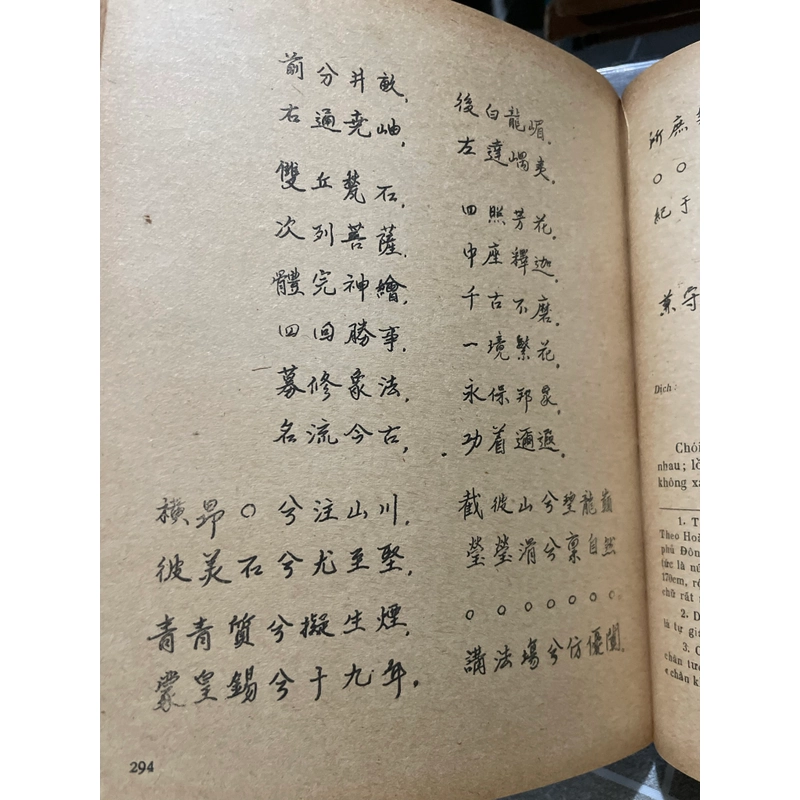 前分井畝,
後白龍嵋,
右通堯岫,
左達嵎夷,
雙丘甃石,
四照芳花,
次列菩薩,
中座釋迦,
體完神繪,
千古不磨,
四回勝事,
一境繁花,
募修象法,
永保邦家,
名流今古,
功着邇遐,
橫昴○兮注山川,
截彼山兮塹龍巔
彼美石兮尤至堅,
瑩瑩滑兮稟自然
青青質兮擬生煙,
○○○○○○○
蒙皇錫兮十九年,
講法場兮仿優闐,
294
所庶
○○
紀于
兼守
Dịch:
Chói
nhau; lồ
không xá
1. T
Theo Hoà
phủ Đôn
tức là nú
170cm, rộ
chữ rất
2. D
là tự gi
3. C
chân tướ
«chân k